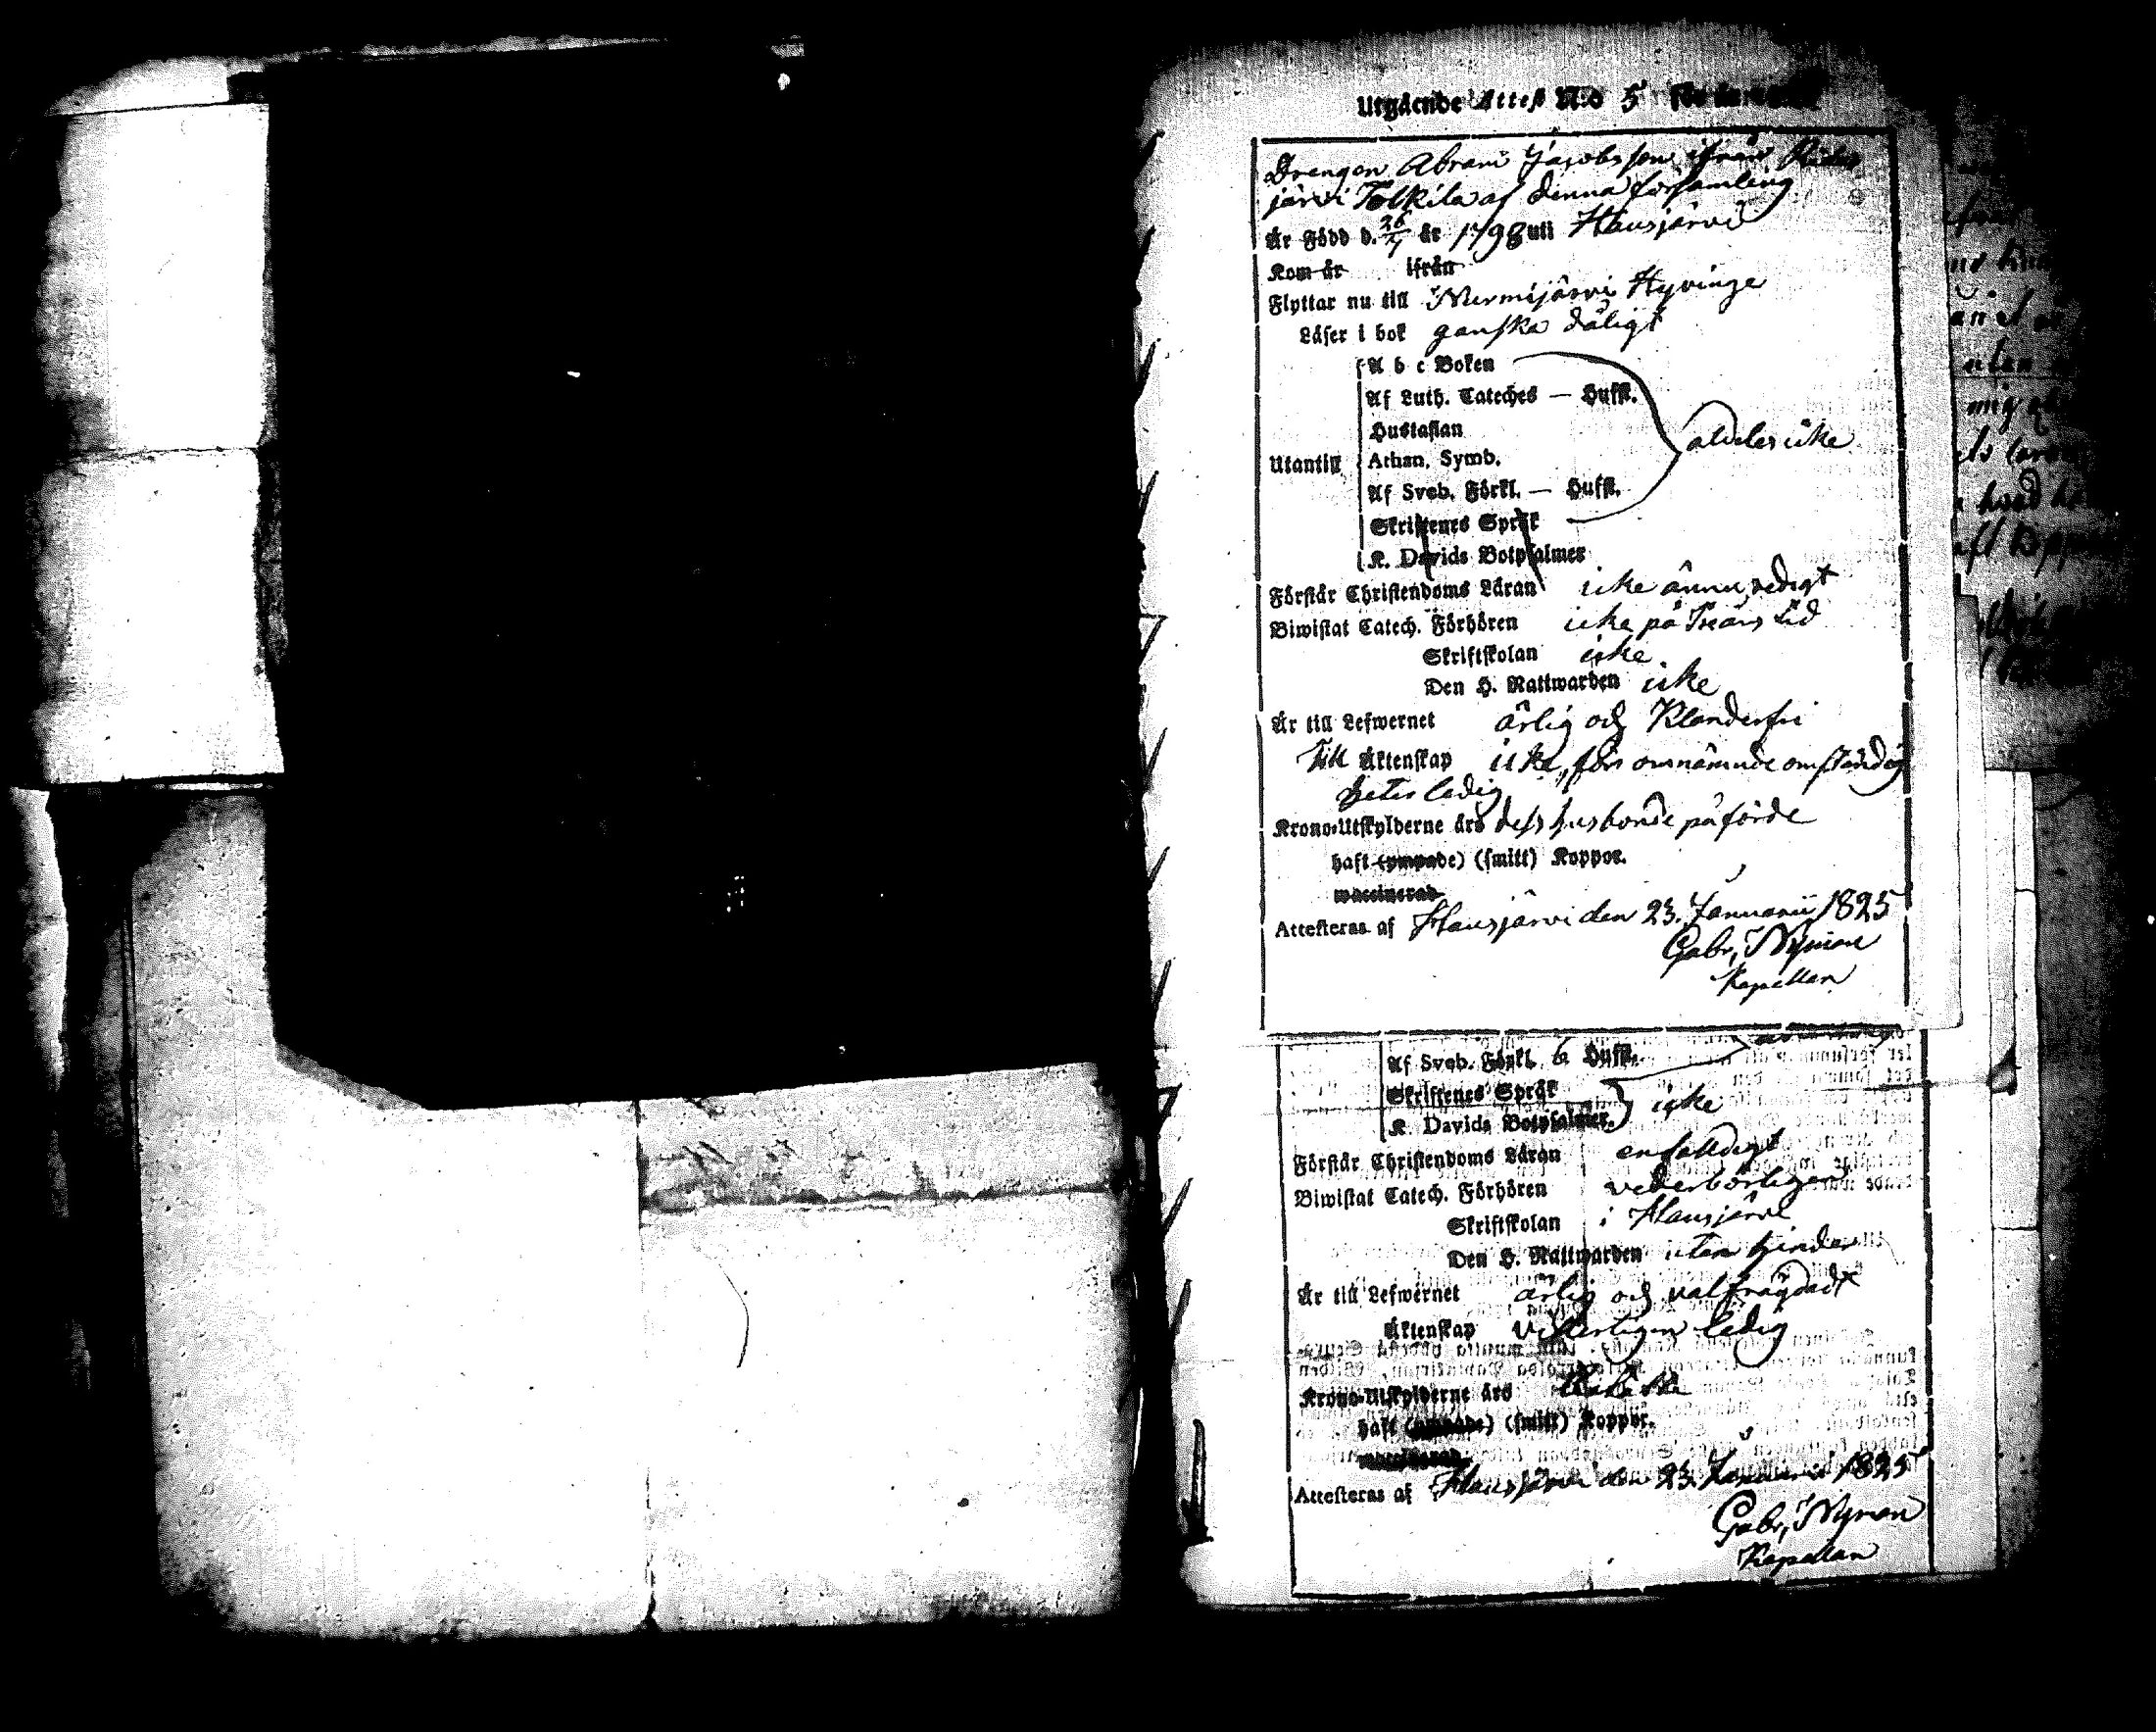 Utgående Attest N:o 5
Drengen Abram Jacobsson ifrån
järvi Tolkila af denna församling
Är Född d. 26/7 år 1798 uti Hausjärvi
Kom år ifrån
Flyttar nu till Nurmijärvi Hyvinge
Läser i bok ganska dåligt
A b c Boken
Af Luth. Cateches — Hufst.
Hustaflan
aldeles icke
Utantill Athan. Symb.
Af Sveb. Förkl. — Hufst.
Skriftenes Språk
K. Davids Botpsalmer
Förstår Christendoms Läran icke ännu redigt
Biwistat Catech. Förhören icke på 3ne års tid
Skriftskolan icke
Den H. Nattwarden icke
Är till Lefwernet ärlig och Klanderfri
Till Äktenskap icke, för omnämnde omständig
heter ledig
Krono-Utskylderne års dess husbonde påförde
haft (ympade) (smitt) Koppor.
waccinerad
Attesteras af Hausjärvi den 23. Januarii 1825
Gabr. Nyman
Kapellan
Af Sveb. Förkl. 6 Hufst.
Skriftenes Språk
icke
K. Davids Botpsalmer.
Förstår Christendoms Läran enfaldigt
Biwistat Catech. Förhören vederbörligen
Skriftskolan i Hausjärvi
Den H. Nattwarden utan hinder
Är till Lefwernet ärlig och välfrägdad
Äktenskap veterligen ledig
Krono-Utskylderne års
haft (ympade) (smitt) Koppor.
waccinerad
Attesteras af Hausjärvi den 23. Januarii 1825
Gabr. Nyman
Kapellan